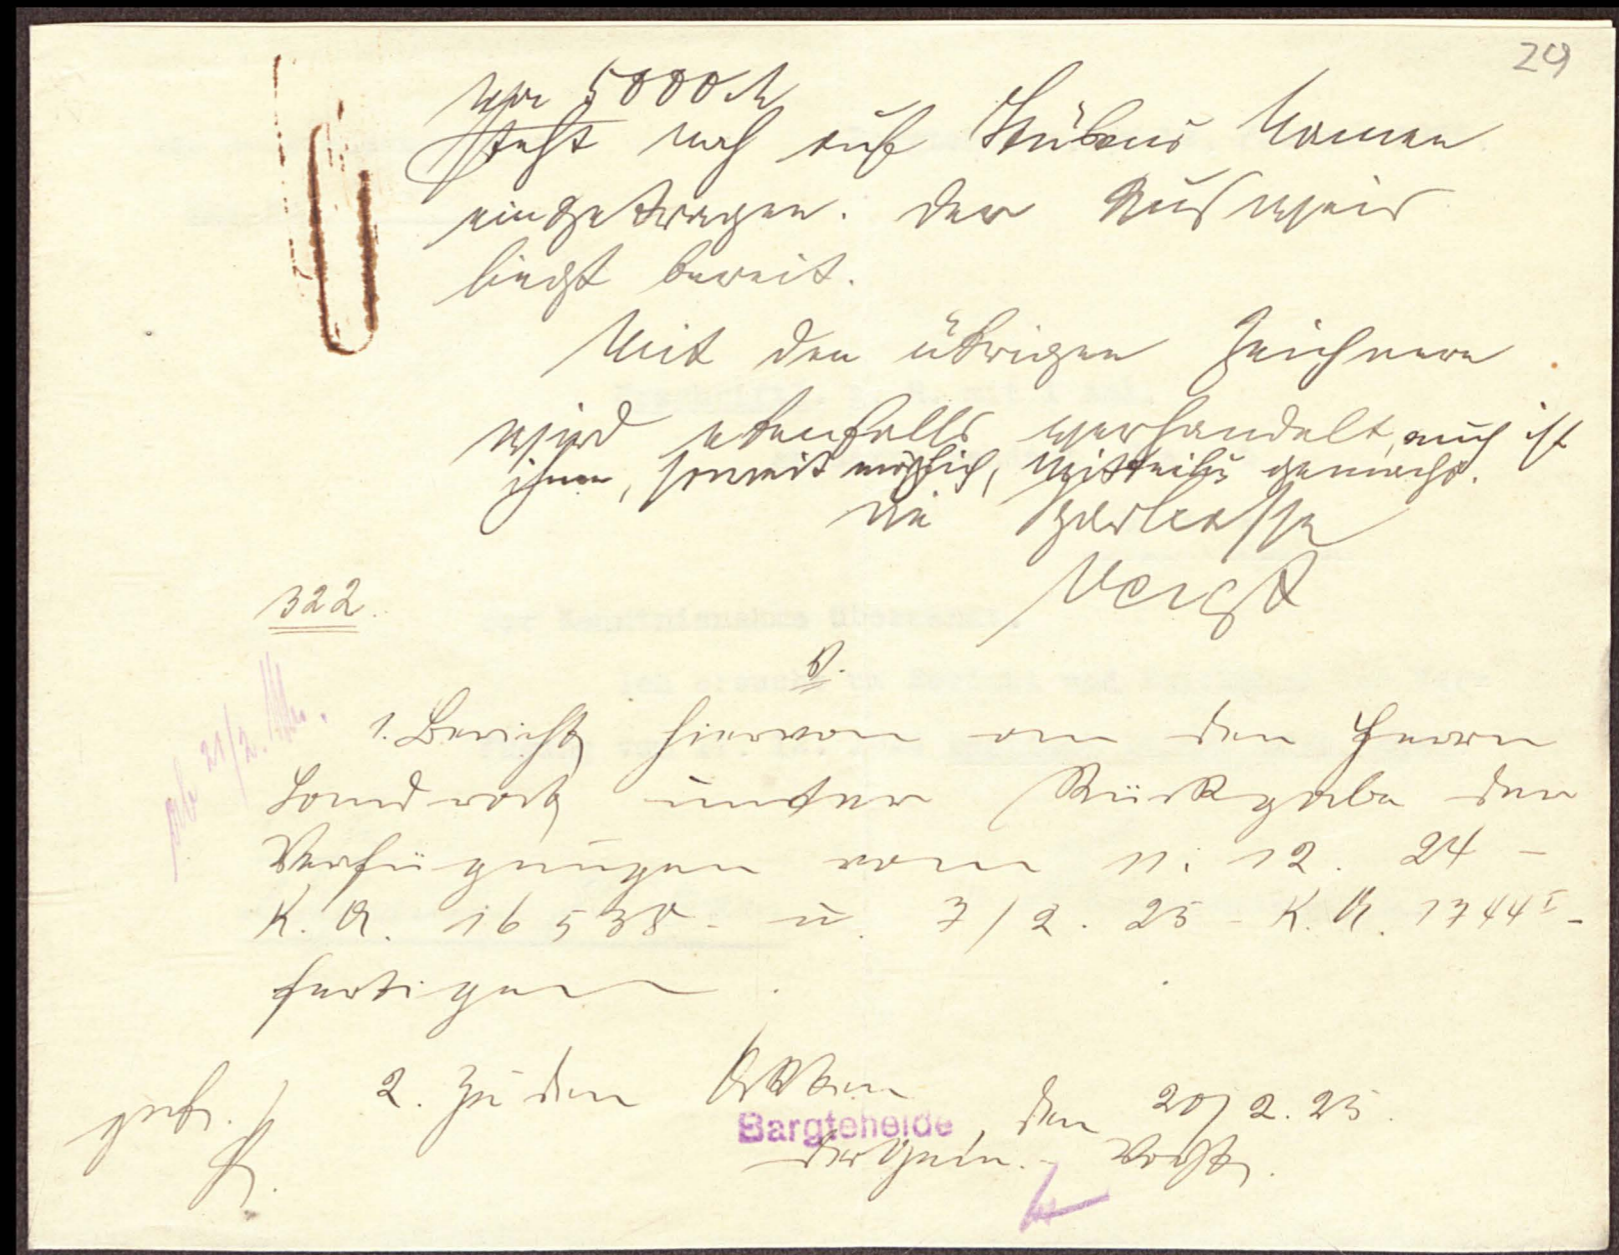 29
von 5000 M
steht noch auf Stübens Namen
eingetragen. Der Ausweis
liegt bereit.
Mit den übrigen Zeichnern
wird ebenfalls verhandelt, auch ist
ihnen, soweit möglich, Mitteilg gemacht.
Die Sparkasse
Voigt
322.
V.
ab 21/2.
1. Bericht hiervon an den Herrn
Landrat unter Rückgabe der
Verfügungen vom 11. 12. 24 -
K. A. 16538 - u. 7/2. 25 - K. A. 1744 I -
fertigen.
2. Zu den Akten
Bargteheide, den 20/2. 25.
gef.
Der Gem. - Vorst.